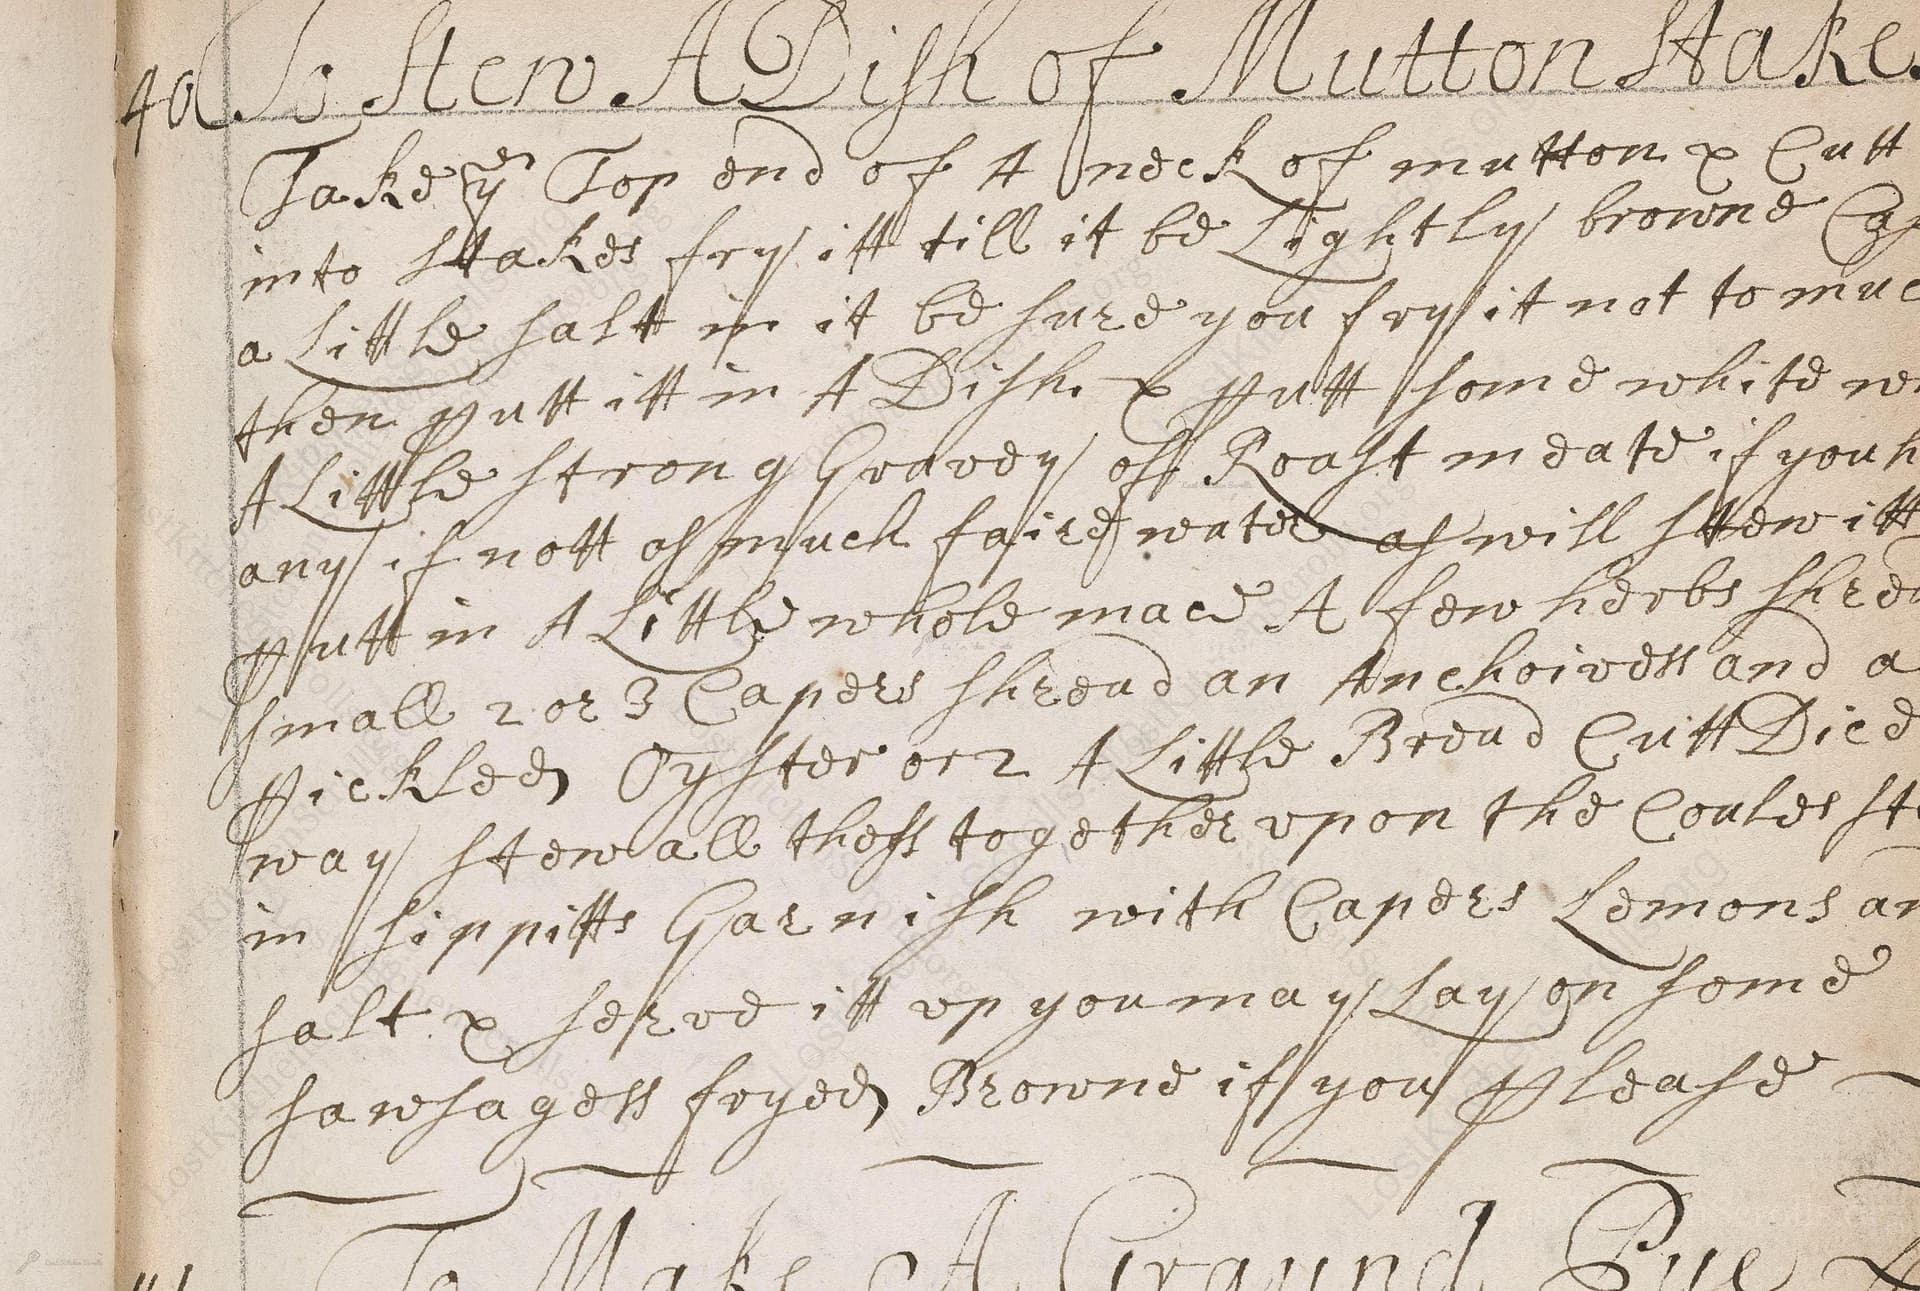 40 To Stew A Dish of Mutton Stakes
Take ye Top end of A neck of mutton & Cutt
into Stakes fry itt till it be Lightly browne
a Little salt in it be sure you fry it not to muc
then putt itt in A Dish & putt some white
A Little strong Gravey off Roast meate if you h
any if nott as much faire water as will stew itt
putt in A Little whole mace A few herbs shred
small 2 or 3 Capers shread an Anchoivess and a
pickled Oyster or 2 A Little Bread Cutt Dice
way stew all thess together vpon the Coules
in sippitts Garnish with Capers Lemons an
salt & serve itt vp you may Lay on some
sawsagess fryed Browne if you please
To Make A Graund Pye